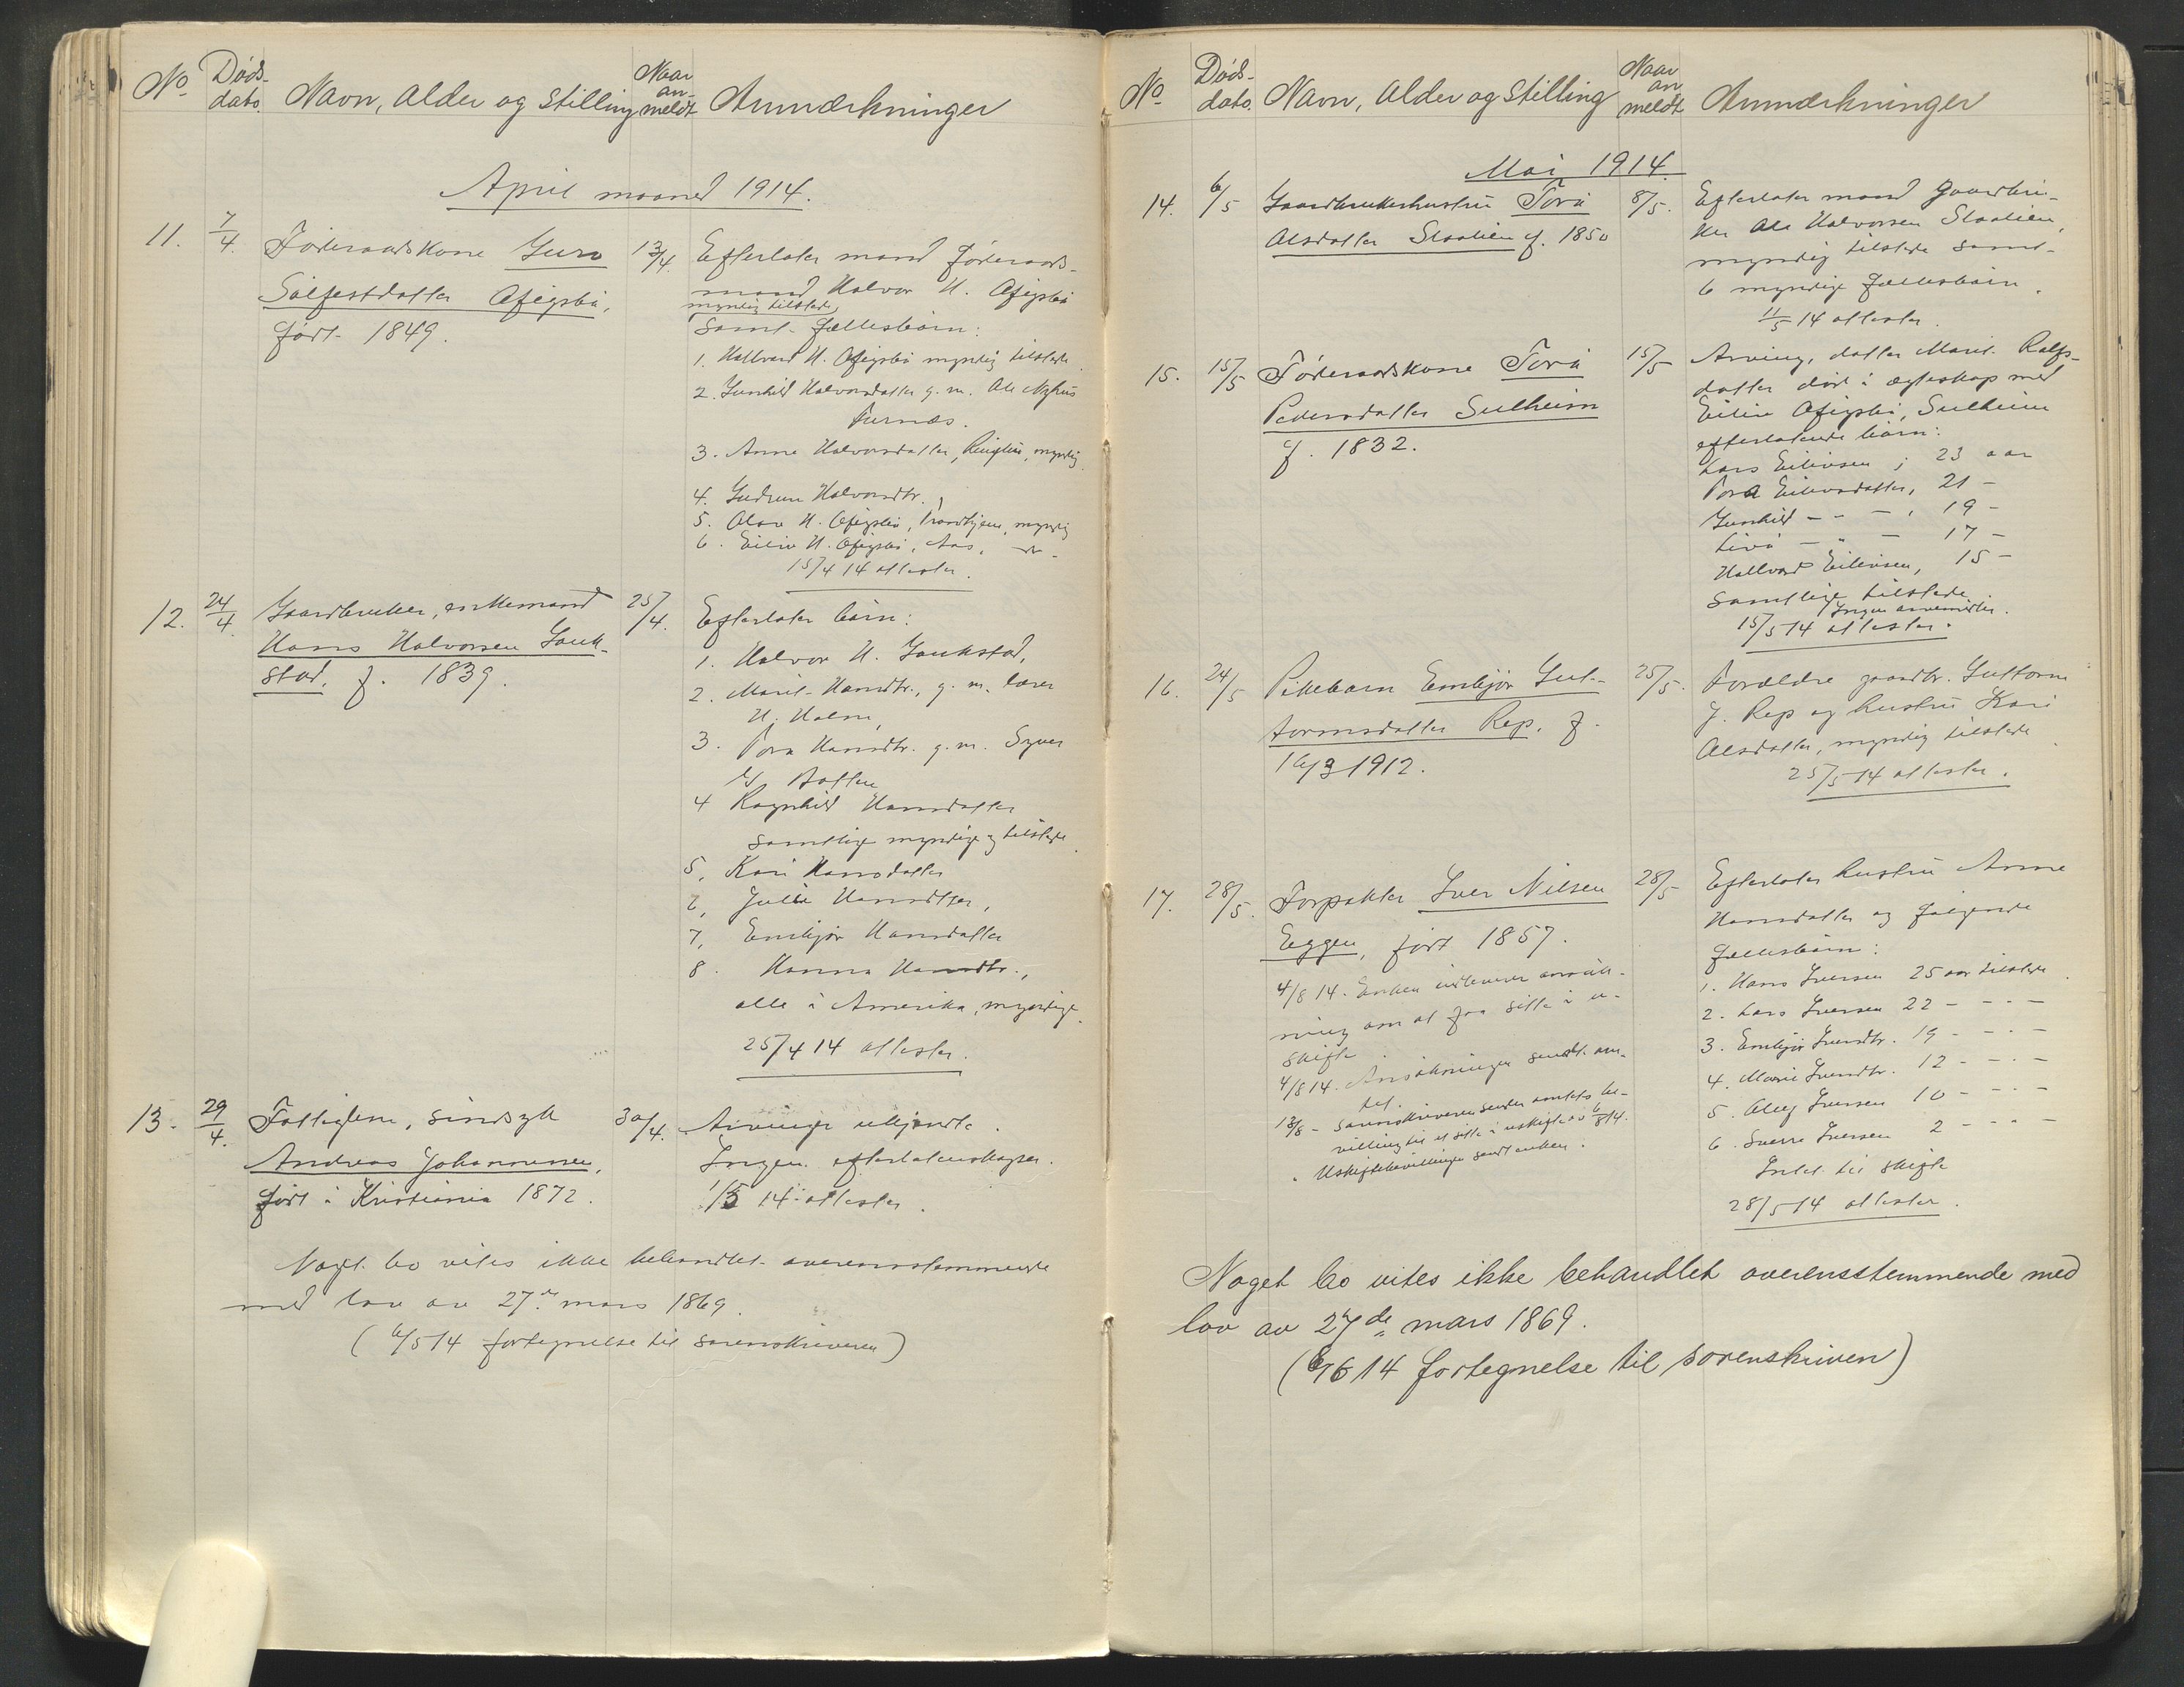 No Døds- dato. Navn, alder og stilling Naar an- meldt Anmærkninger
April maaned 1914.
11. 7/4. Føderaadskone Guro 13/4. Efterlater mand føderaads-
Solfestdatter Øfigsbø, mand Halvor H. Øfigsbø
myndig tilstede
født 1849. samt fællesbørn:
1. Hallvard H. Øfigsbø myndig tilstede
2. Gunhild Halvorsdatter g. m. Ole Nyhus
Furnæs.
3. Anne Halvorsdatter, myndig
4. Gudrun Halvorsdtr.
5. Olav H. Øfigsbø, Trondhjem, myndig
6. Eiliv H. Øfigsbø, Aas, -"-
15/4 14 attester.
12. 24/4. Gaardbruker, enkemand 25/4. Efterlater børn:
Hans Halvorsen Gauk-
stad, f. 1839. 1. Halvor H. Gaukstad,
2. Marit Hansdtr., g. m. lærer
H. Holm,
3. Tora Hansdtr. g. m. Syver
4 Ragnhild Hansdatter
samtlige myndige og tilstede.
5. Kari Hansdatter
6, Julie Hansdtter,
7, Embjør Hansdatter
8. Hanna Hansdtr.,
alle i Amerika, myndige.
25/4 14 attester.
13. 29/4. Fattiglem, sindsyk 30/4. Arvinger ukjendte.
Andreas Johannessen, Ingen efterlatenskaper.
født i Kristiania 1872. 1/5 14 attester.
Noget bo vites ikke behandlet overensstemmende
med lov av 27de mars 1869.
(6/5 14 fortegnelse til sorenskriveren)
No Døds- dato. Navn, alder og stilling Naar an meldt Anmærkninger
Mai 1914.
14. 6/5 Gaardbrukerhustru Torø 8/5. Efterlater mand gaardbru-
Olsdatter Slaalien f. 1850 ker Ole Halvorsen Slaalien,
myndig tilstede samt
6 myndige fællesbørn.
11/5 14 attester.
15. 15/5 Føderaadskone Torø 15/5 Arving, datter Marit Rolfs-
Pedersdatter Sulheim datter død i egteskap med
f. 1832. Eiliv Øfigsbø, Sulheim
efterlatende børn:
Lars Eilivsen, 23 aar
Tora Eilivsdatter, 21 -
Gunhild - " - , 19 -
Livø - " - 17 -
Hallvard Eilivsen, 15 -
samtlige tilstede.
Ingen arvemidler.
15/5 14 attester.
16. 24/5 Pikebarn Embjør Gut- 25/5. Forældre gaardbr. Guttorm
tormsdatter Rep. f. J. Rep og hustru Kari
16/3 1912. Olsdatter, myndig tilstede.
25/5 14 attester.
17. 28/5. Forpakter Iver Nilsen 28/5 Efterlater hustru Anne
Eggen, født 1857. Hansdatter og følgende
fællesbørn:
4/8 14. Enken indleverer ansøk- 1. Hans Iversen 25 aar tilstede.
ning om at faa sitte i u- 2. Lars Iversen 22 - - " -
skifte. 3. Embjør Iversdtr. 19 - - " -
4/8 14. Ansøkningen sendt am- 4. Marie Iversdtr. 12 - - " -
tet. 5. Oluf Iversen 10 - - " -
13/8 - Sorenskriveren sender amtets be- 6. Sverre Iversen 2 - - " -
villing til at sitte i uskifte av 6/8 14. Intet til skifte
" Uskiftebevillingen sendt enken. 28/5 14 attester.
Noget bo vites ikke behandlet overensstemmende med
lov av 27de mars 1869.
(6/6 14 fortegnelse til sorenskriven)